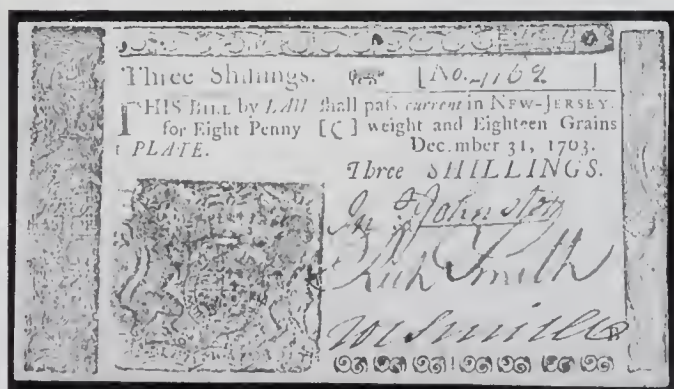 Three Shillings. [No. 4162 ]
THIS BILL by LAW shall paſs current in NEW-JERSEY,
for Eight Penny [C] weight and Eighteen Grains
PLATE. December 31, 1763.
Three SHILLINGS.
Jn. Johnston
Rich Smith